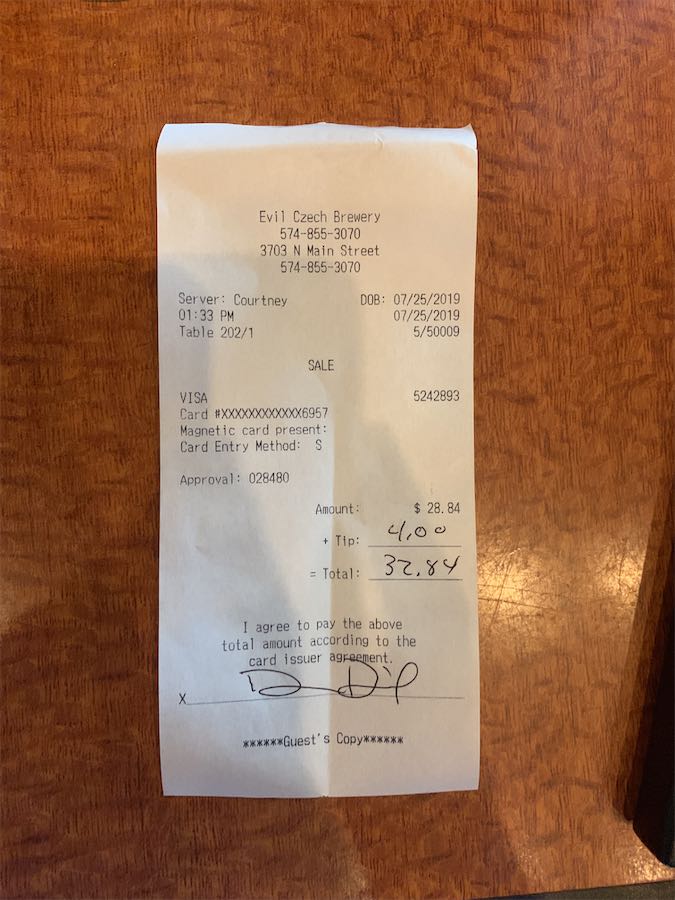 Evil Czech Brewery
574-855-3070
3703 N Main Street
574-855-3070
Server: Courtney DOB: 07/25/2019
01:33 PM 07/25/2019
Table 202/1 5/50009
SALE
VISA 5242893
Card #XXXXXXXXXXXX6957
Magnetic card present:
Card Entry Method: S
Approval: 028480
Amount: $ 28.84
+ Tip: 4.00
= Total: 32.84
I agree to pay the above
total amount according to the
card issuer agreement.
X
******Guest's Copy******